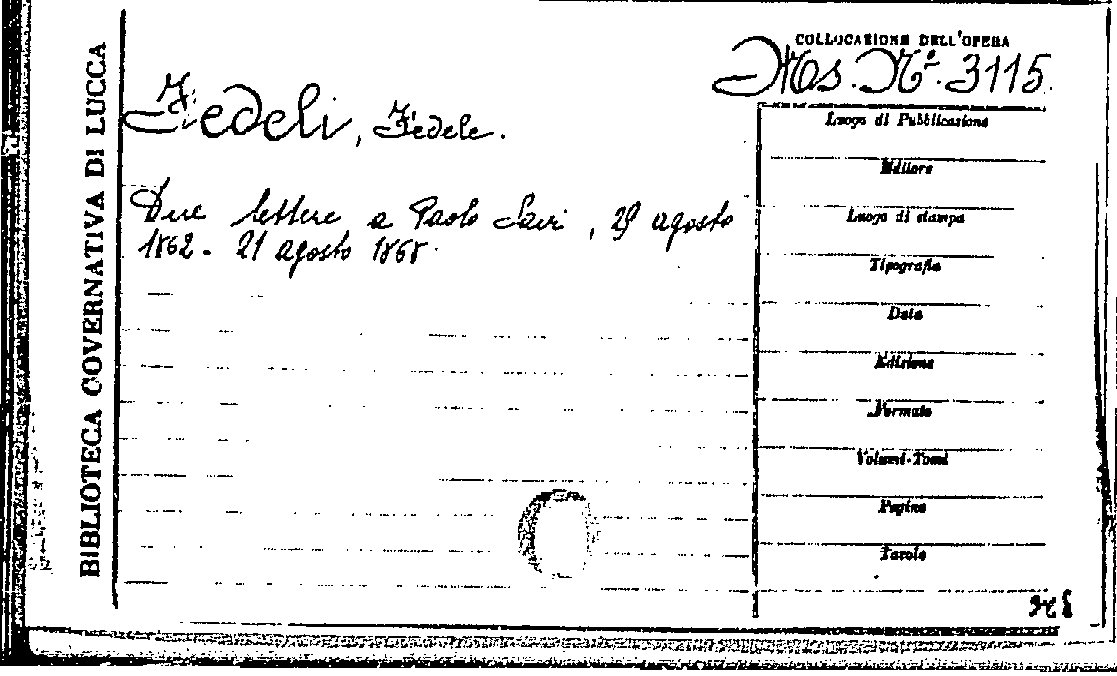 BIBLIOTECA GOVERNATIVA DI LUCCA
COLLOCAZIONE DELL'OPERA
Ms. N.º 3115.
Fedeli, Fedele.
Due lettere a Paolo Savi, agosto
1862 - 21 agosto 1868.
Luogo di Pubblicazione
Editore
Luogo di stampa
Tipografia
Data
Edizione
Formato
Volumi-Tomi
Pagine
Tavole